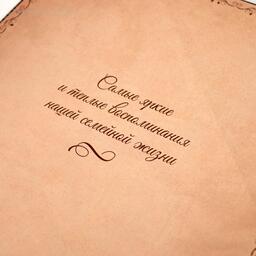 Самые яркие
и теплые воспоминания
нашей семейной жизни